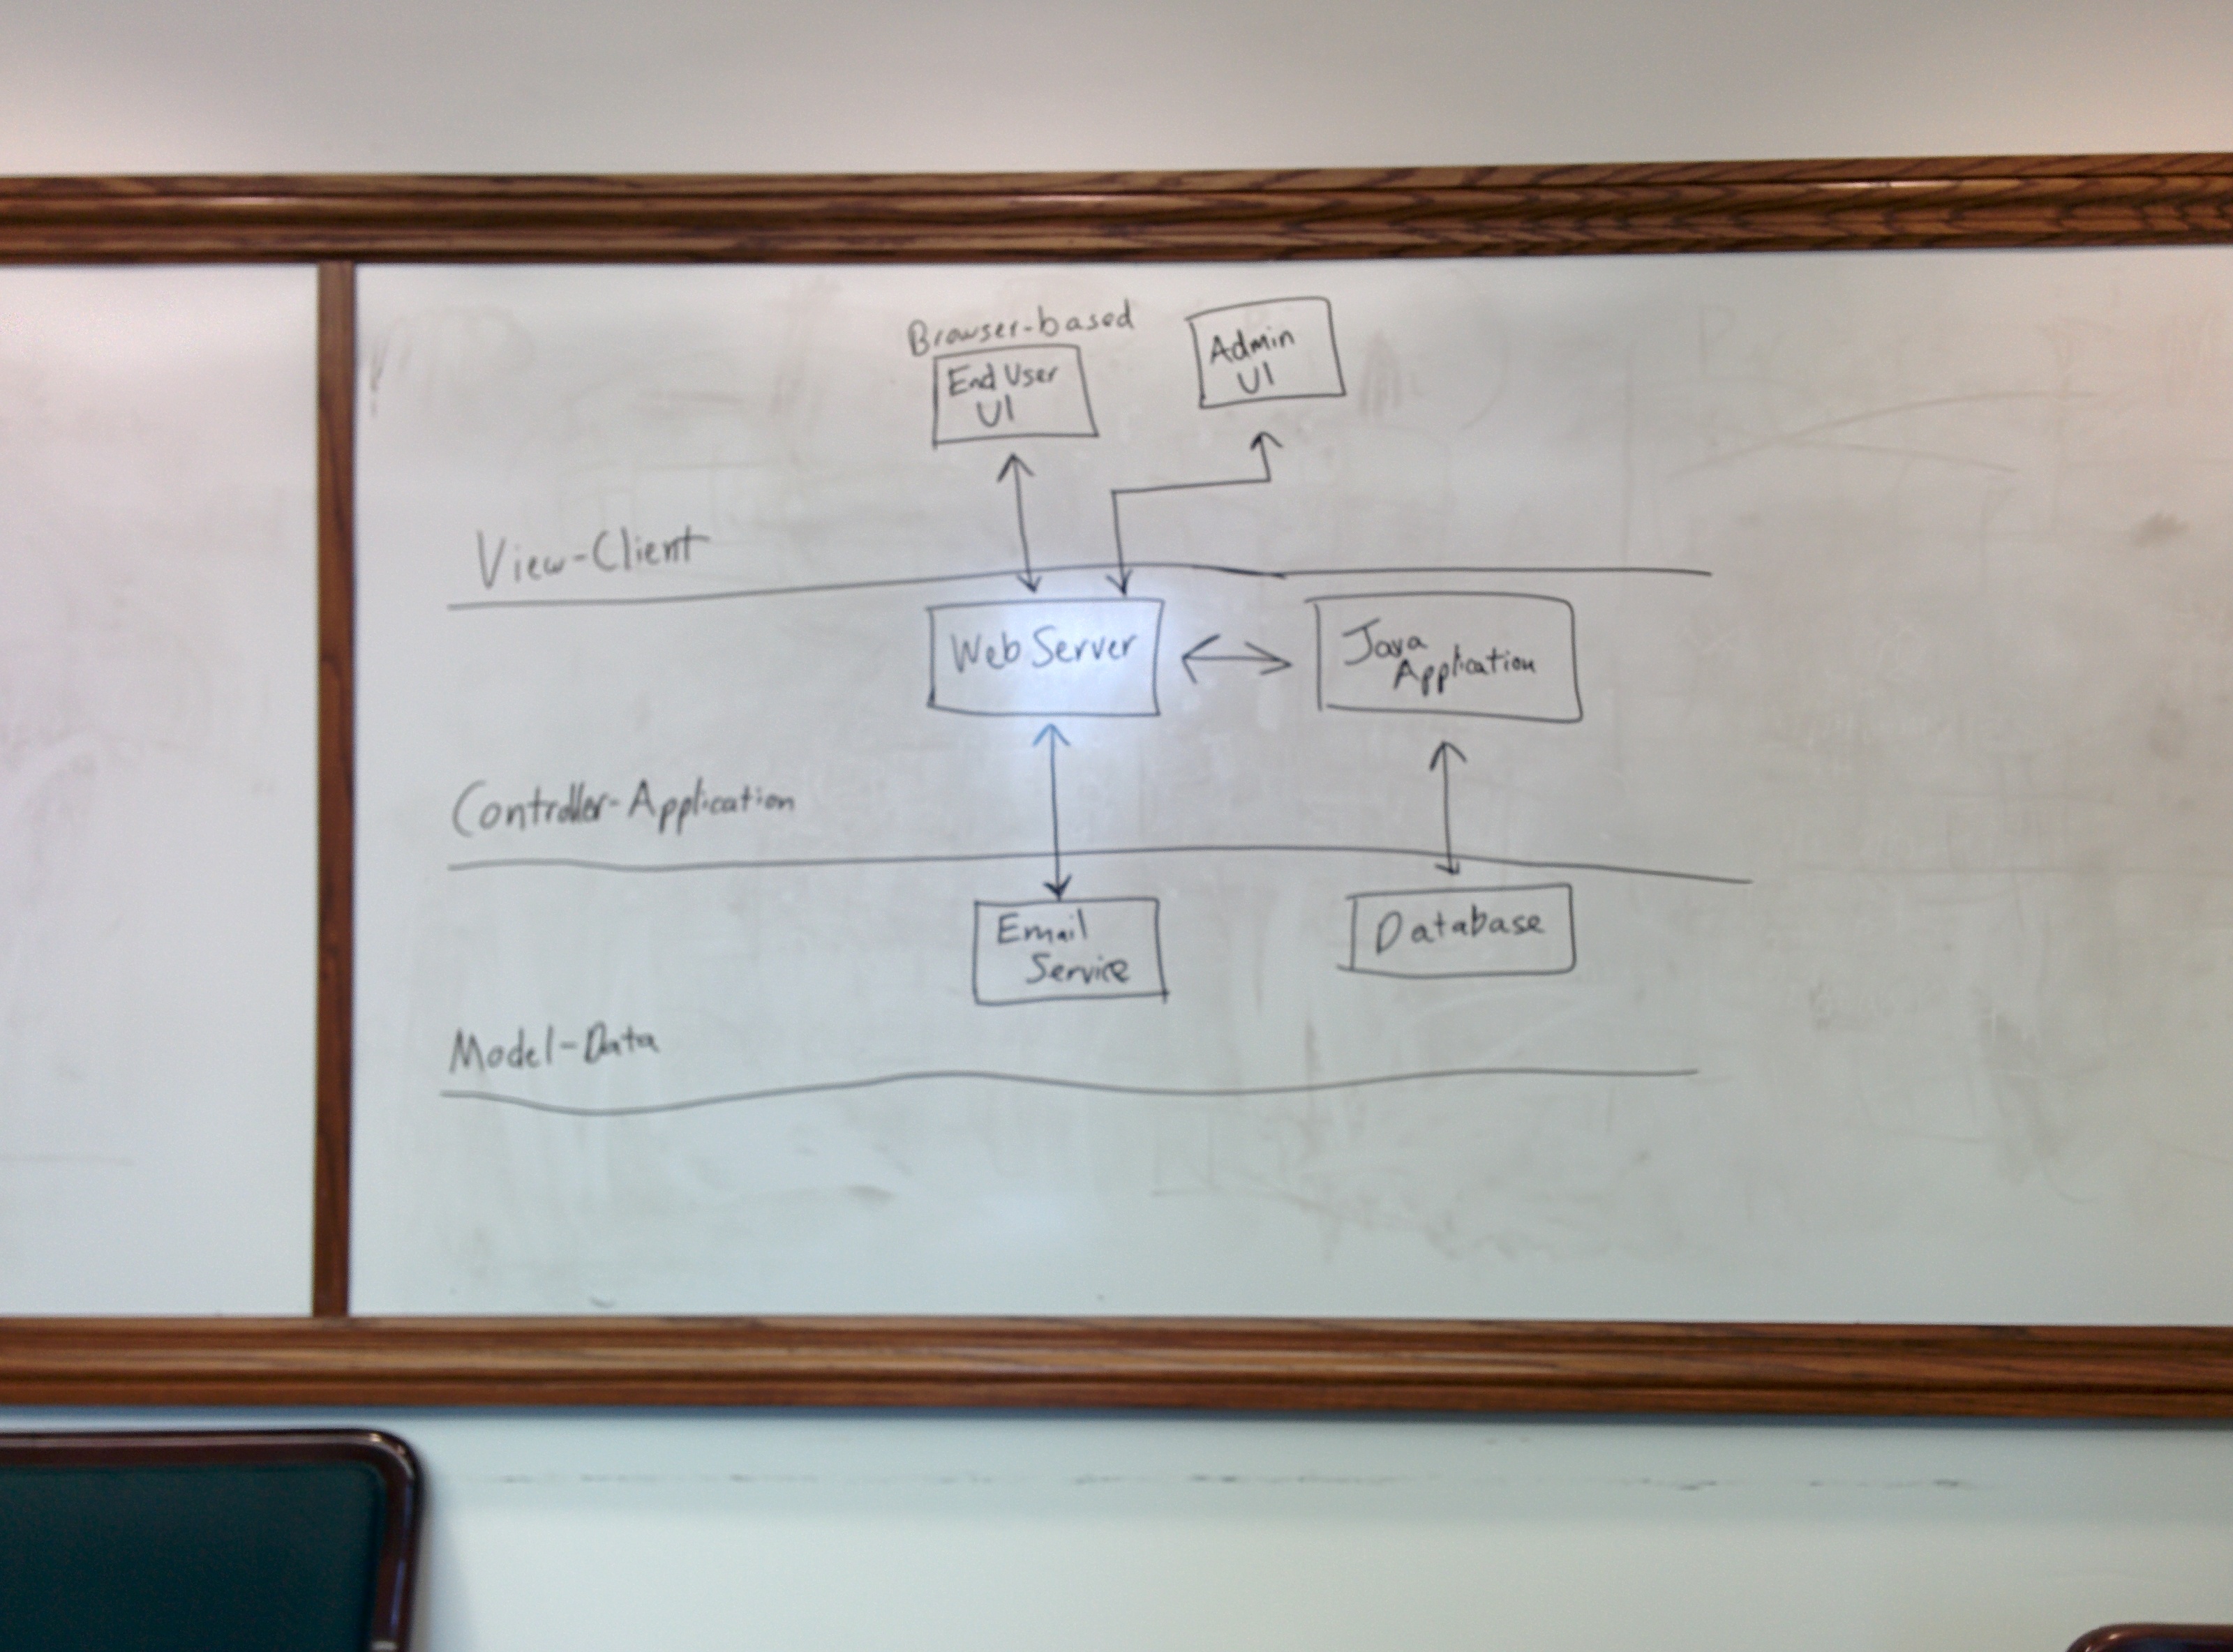 Browser-based
End User
UI
Admin
UI
View-Client
Web Server
Java
Application
Controller-Application
Email
Service
Database
Model-Data